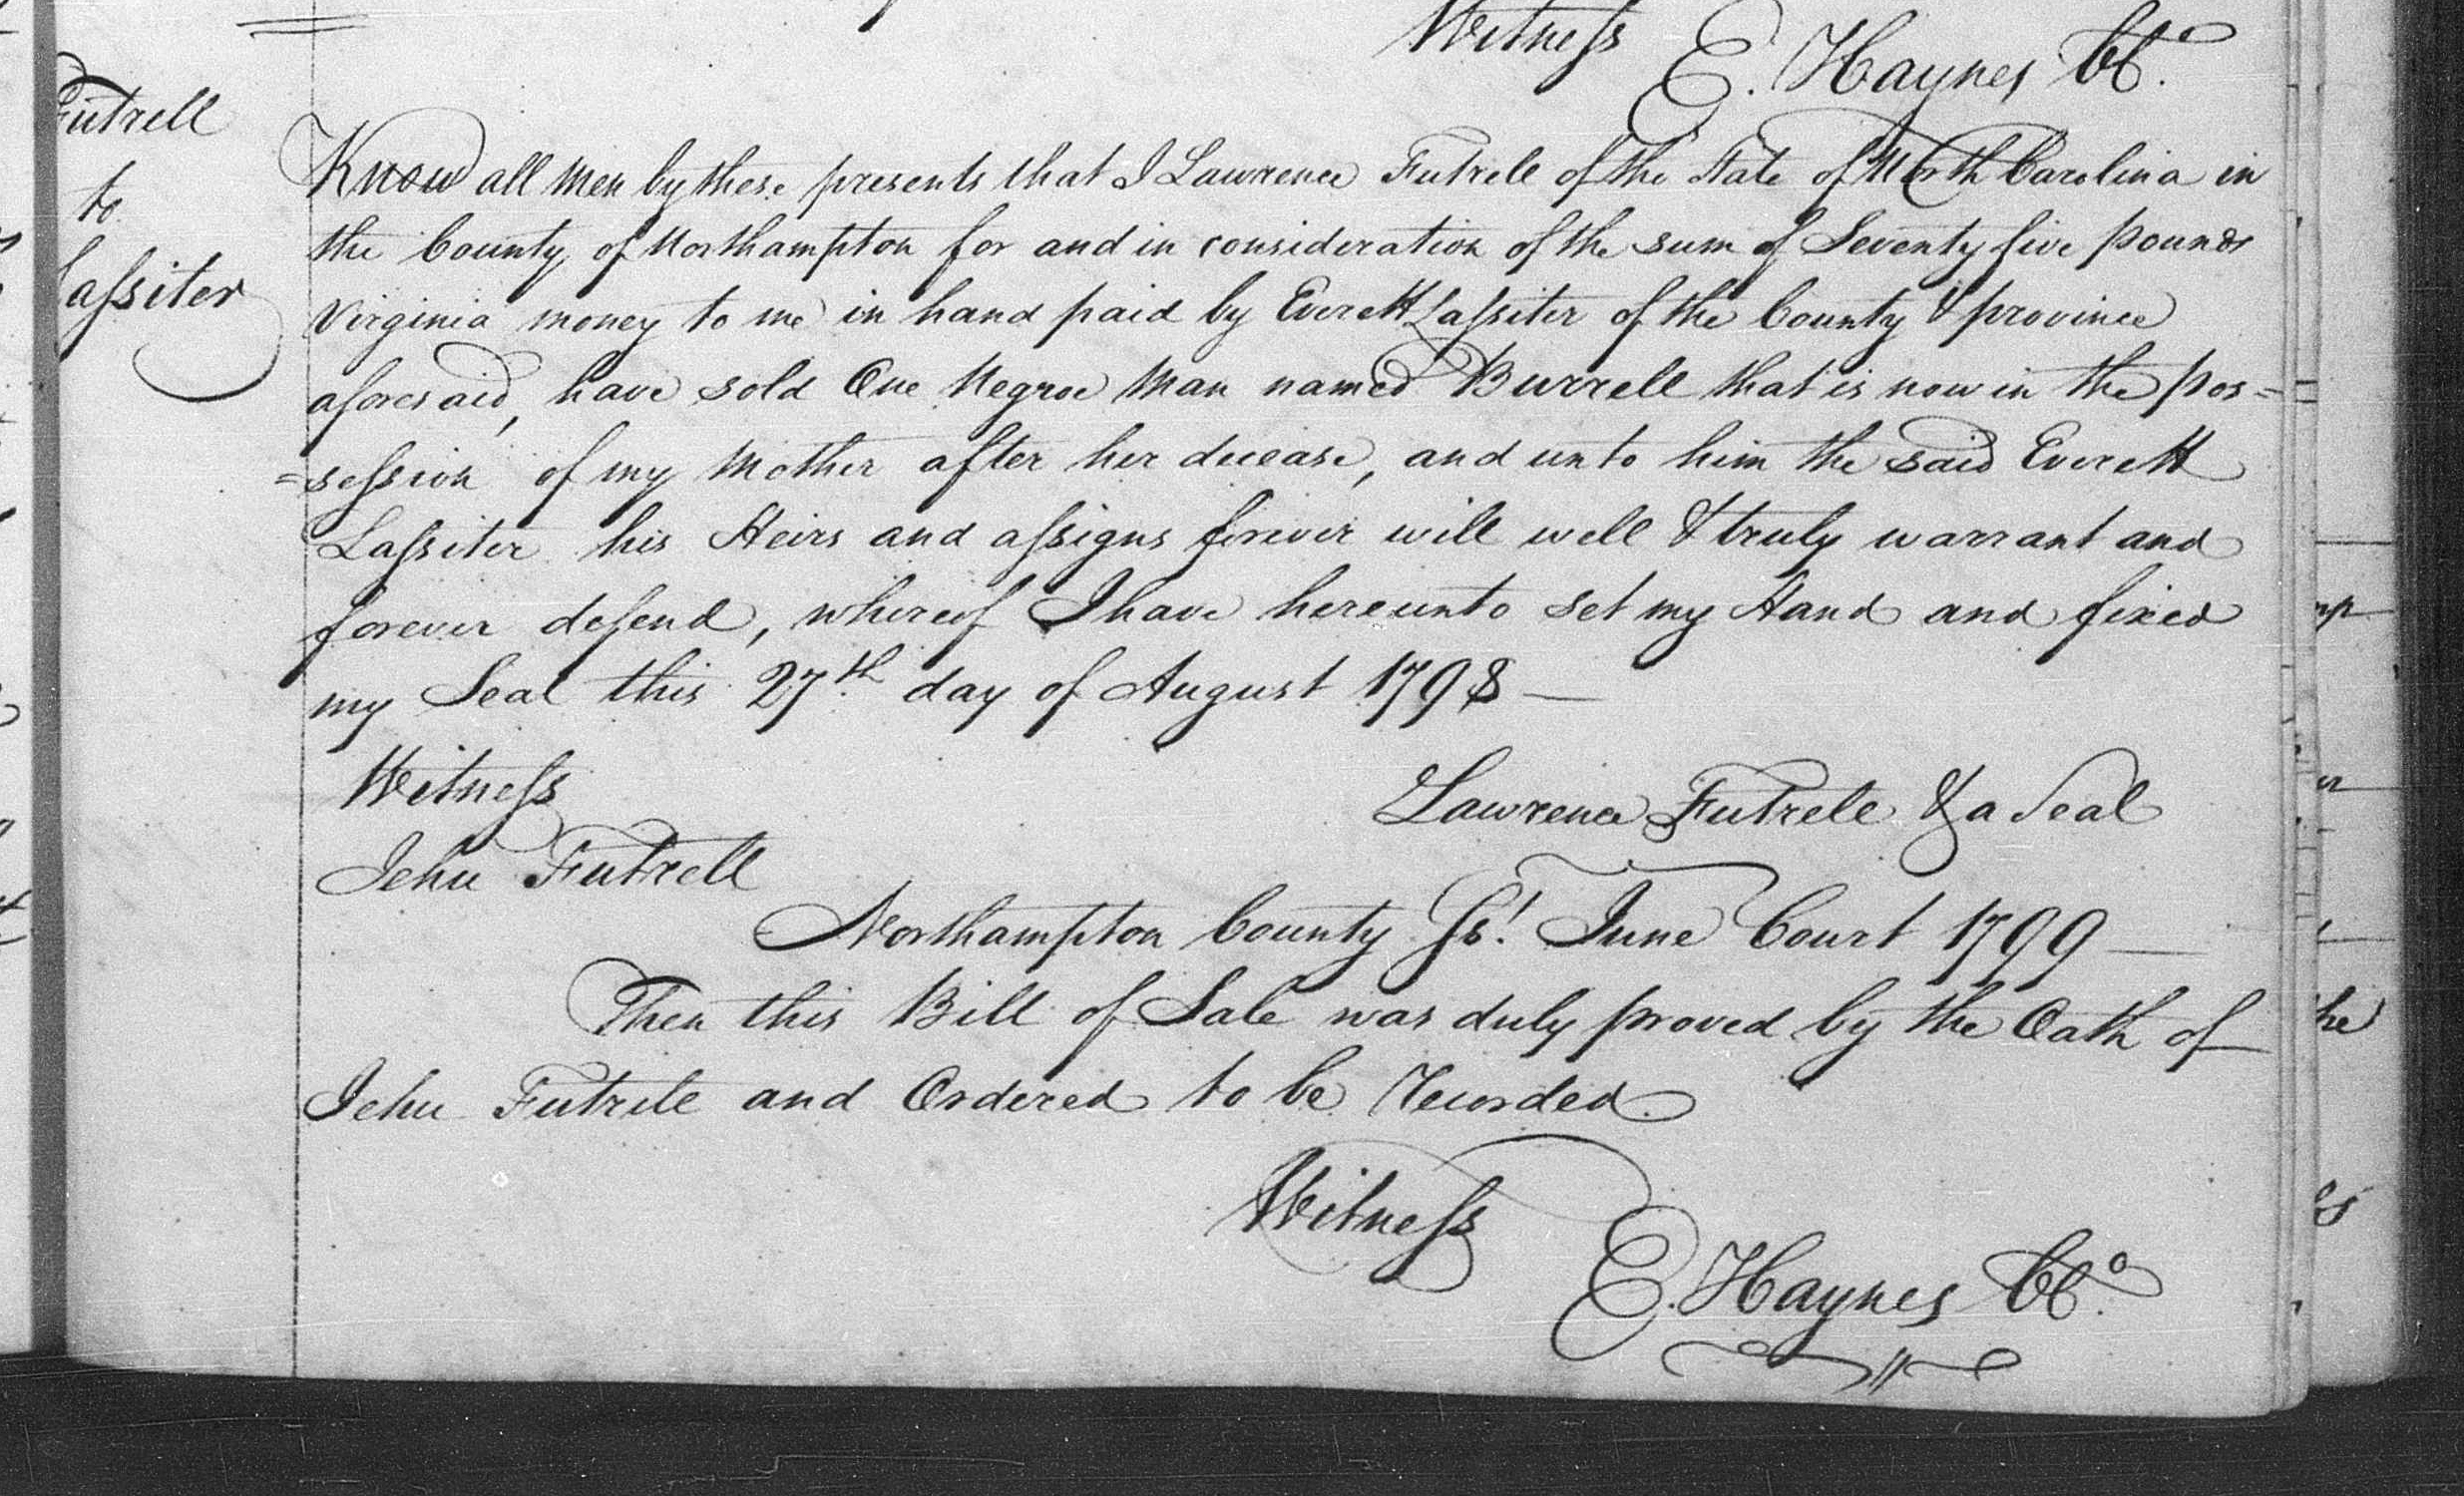 Witness
E. Haynes Clo.
Futrell
to
Lassiter
Know all men by these presents that I Lawrence Futrell of the State of North Carolina in
the County of Northampton for and in consideration of the sum of Seventy five pounds
Virginia money to me in hand paid by Everett Lassiter of the County & province
aforesaid, have sold One Negroe Man named Burrell that is now in the pos=
=session of my Mother after her decease, and unto him the said Everett
Lassiter his Heirs and assigns forever will well & truly warrant and
forever defend, whereof I have hereunto set my Hand and fixed
my Seal this 27th day of August 1798 —
Witness
Lawrence Futrele & a Seal
Jehu Futrell
Northampton County Ss! June Court 1799 —
Then this Bill of Sale was duly proved by the Oath of
Jehu Futrele and Ordered to be Recorded.
Witness
E. Haynes Clo.